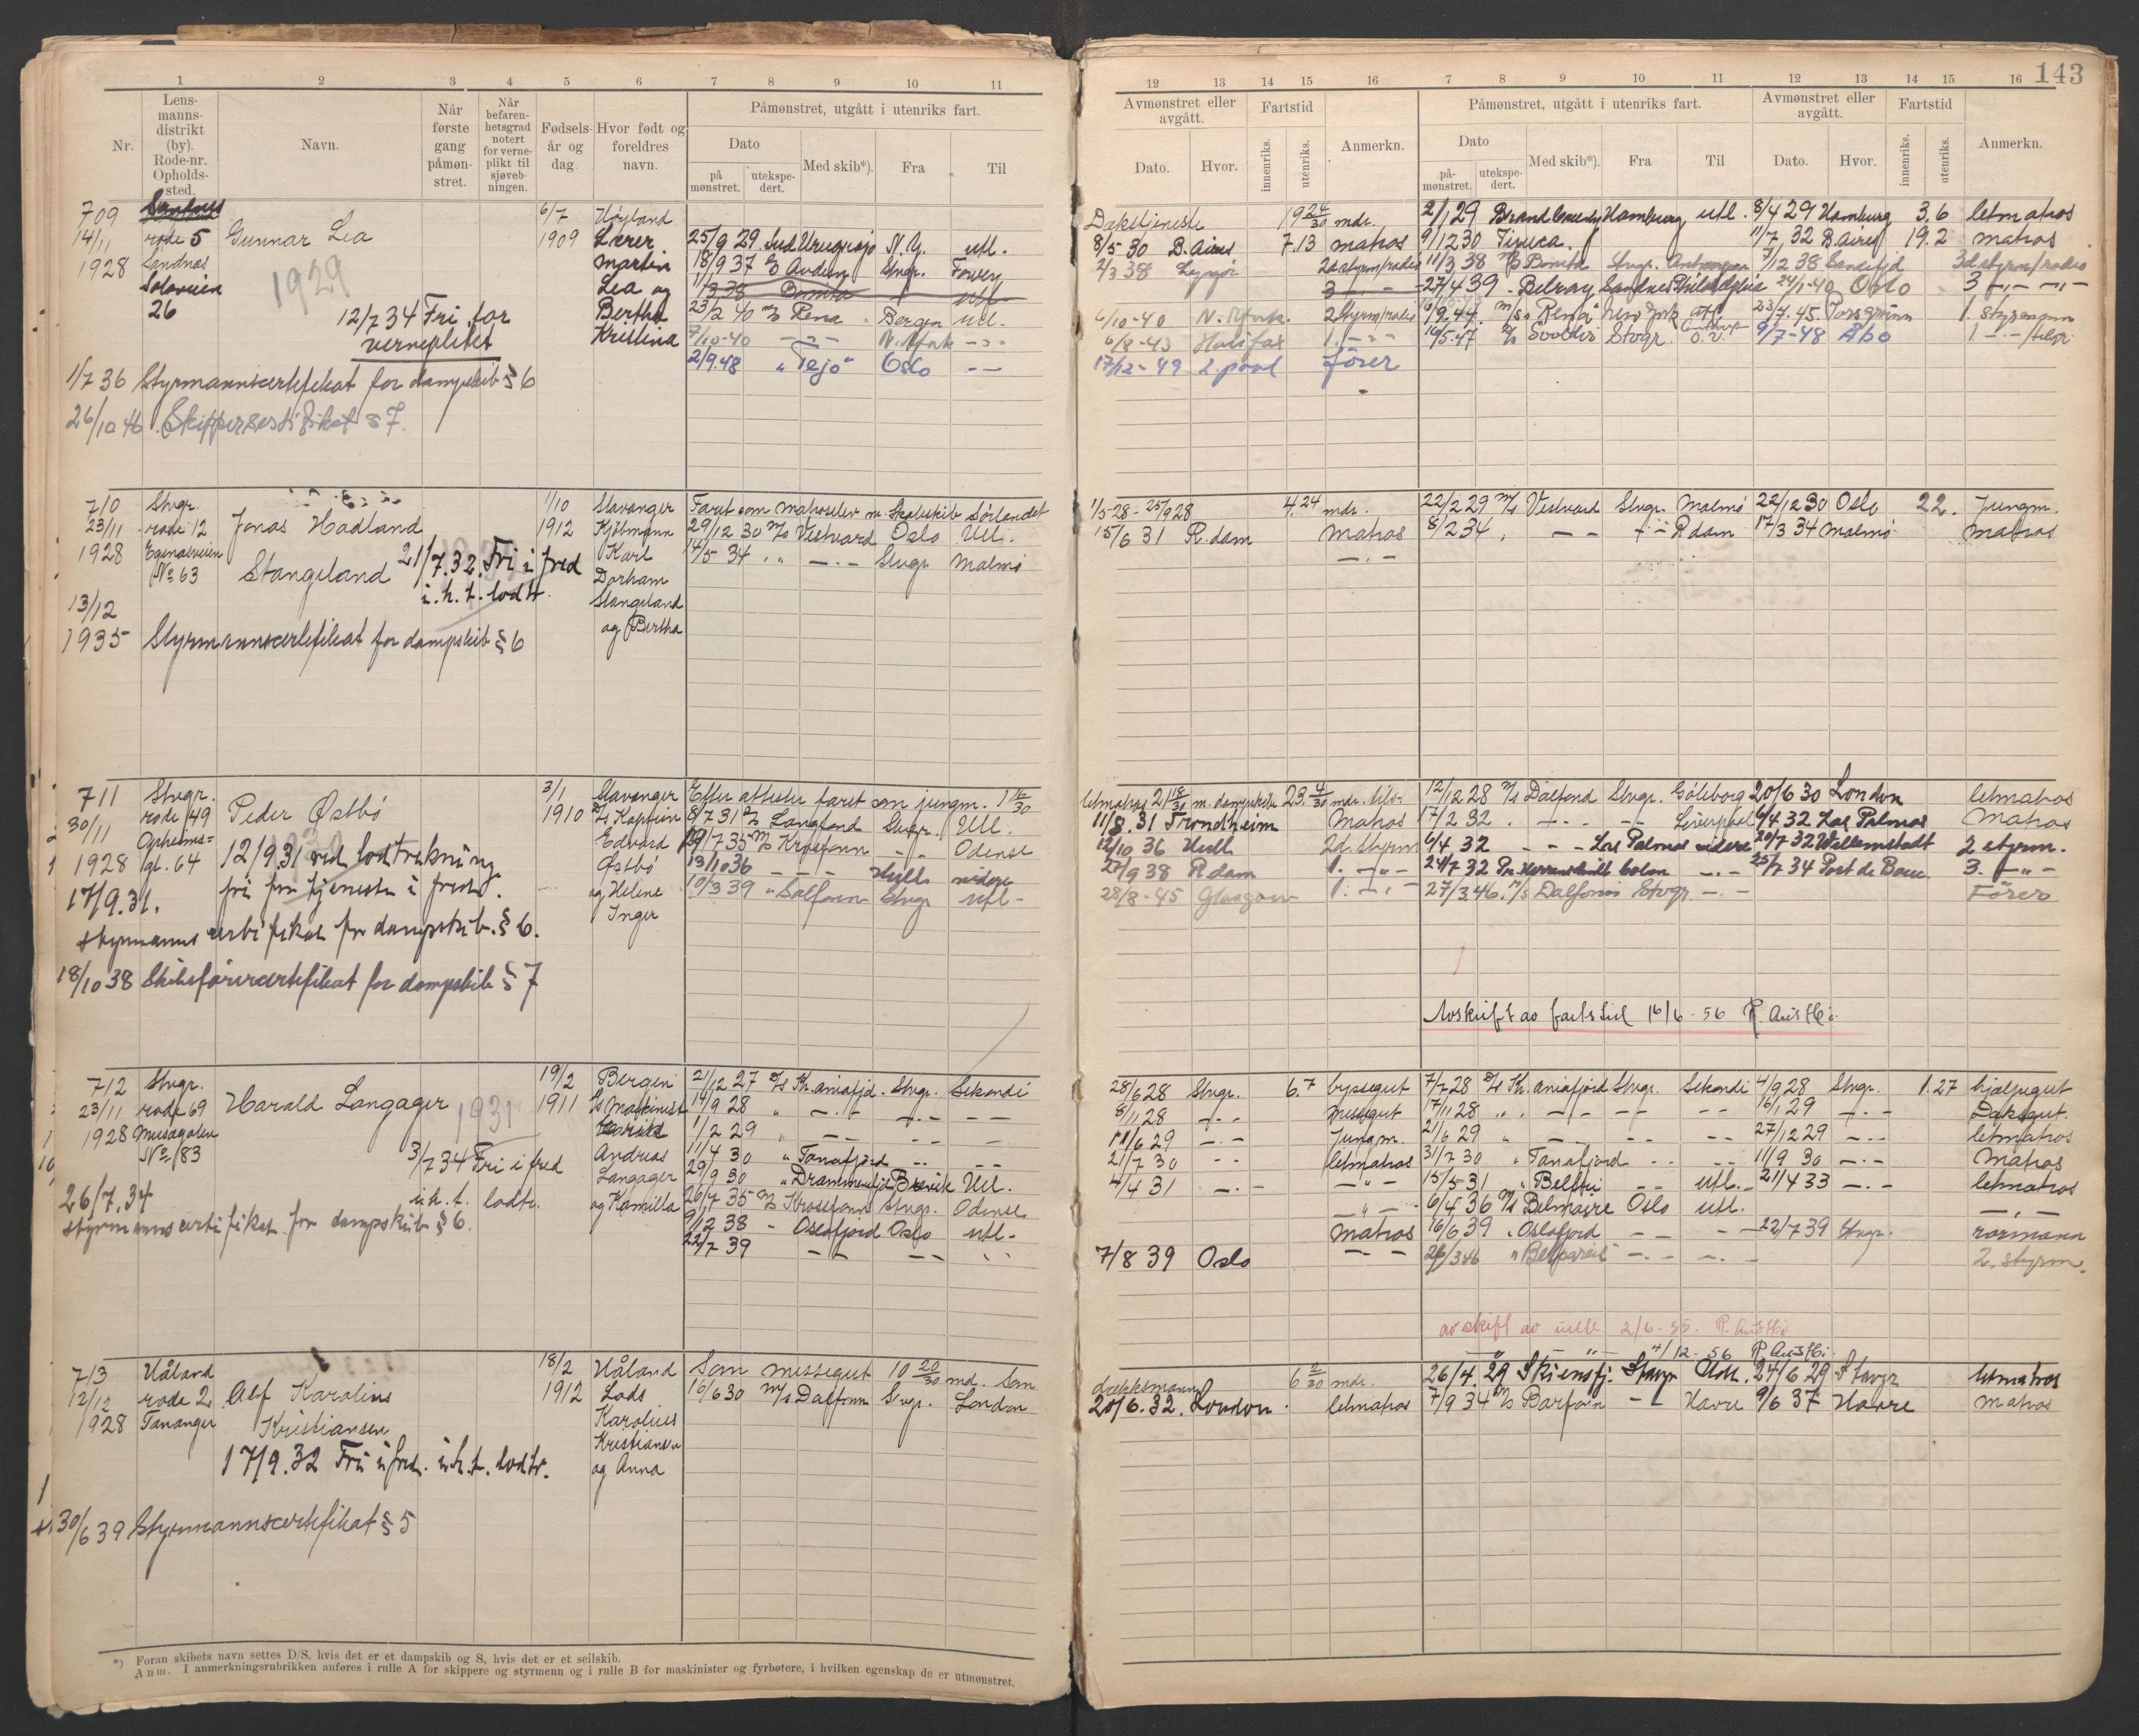 143
1 2 3 4 5 6 7 8 9 10 11
Nr.
Lens-
manns-
distrikt
(by).
Rode-nr.
Opholds-
sted.
Navn.
Når
første
gang
påmøn-
stret.
Når
befaren-
hetsgrad
notert
for verne-
plikt til
sjøveb-
ningen.
Fødsels-
år og
dag.
Hvor født og
foreldres
navn.
Påmønstret, utgått i utenriks fart.
Dato
på
mønstret.
utekspe-
dert.
Med skib*).
Fra
Til
12 13 14 15 16 7 8 9 10 11 12 13 14 15 16
Avmønstret eller
avgått.
Dato.
Hvor.
Fartstid
innenriks.
utenriks.
Anmerkn.
Påmønstret, utgått i utenriks fart.
Dato
på-
mønstret.
utekspe-
dert.
Med skib*).
Fra
Til
Avmønstret eller
avgått.
Dato.
Hvor.
Fartstid
innenriks.
utenriks.
Anmerkn.
709
14/11
1928
rode 5
Sandnes
Solaveien
26
Gunnar Lea
1929
12/7 34 Fri for
vernepliktet
6/7
1909
Høyland
Lærer
Martin
Lea og
Bertha
Kristina
1/7 36 Styrmannscertifikat for dampskib § 6
26/10 46. Skippersertifikat § 7.
25/9 29 Sud Uruguayo N.Y. utl.
18/9 37 Stvgr. Fowey
23/2 40 M/S Rena Bergen utl.
7/10-40 N. York
2/9.48 "Tejo" Oslo
Dekstjeneste 19 24/30 mdr.
8/5 30 B. Aires 7.13 matros
2/3 38
6/10-40 N. York. 2 styrm/radio
6/8-43 Halifax 1.
17/12-49 L.pool fører
2/1 29 Hamburg utl. 8/4 29 Hamburg 3.6 letmatros
9/12 30 Tijuca 11/7 32 B. Aires 19.2 matros
11/3 38 Bonita Stvgr. 7/12 38 Sandefjd 3d styrm/radio
27/4 39 Belray Sandnes Philadelphia 24/1-40 Oslo
M/S Rena New York 23/7.45 Porsgrunn 1. styrmann
16/5-47 Stvgr. 9/7-48 Åbo
710
23/11
1928
Stvgr.
rode 12
Egenesveien
No 63
Jonas Hadland
Stangeland
21/7.32. Fri i fred
i.h.t. lodtr.
1/10
1912
Stavanger
Kjøbmann
Karl
Dorham
Stangeland
og Bertha
13/12
1935 Styrmannscertifikat for dampskib § 6
Faret som matroselev m. Skoleskib Sørlandet
29/12 30 M/S Vestvard Oslo Utl.
14/5 34 Stvgr. Malmö
1/5-28 - 25/9 28 4.24 mdr.
15/6 31 R.dam matros
22/2 29 M/S Vestvard Stvgr. Malmö 22/12 30 Oslo 22. Jungm.
8/2 34 R.dam 17/3 34 Malmö matros
711
30/11
1928
Stvgr.
rode 49
Opheims-
gt. 64
Peder Østbø
12/9 31 ved lodtrekning
fri for tjeneste i fred.
17/9.31.
styrmannscertifikat for dampskib. § 6.
18/10 38 Skibsførercertifikat for dampskib § 7
3/1
1910
Stavanger
Kaptein
Edvard
Østbø
og Helene
Inger
Efter attester faret som jungm. 1 16/30
8/7 31 Langland Stvgr. Utl.
19/7 35 M/S Krosfonn Odense
13/10 36 Hull videre
10/3 39 Dalfonn Stvgr. utl.
letmatros 21 18/30 m. dampskib 23. 4/30 mdr.
11/8. 31 Trondheim Matros
12/10 36 Hull 2d styrm
27/9 38 R.dam 1.
28/8-45 Glasgow 1.
12/12 28 M/S Dalfonn Stvgr. Göteborg 20/6 30 London letmatros
17/2 32 Liverpool 6/4 32 Las Palmas Matros
6/4 32 Las Palmas videre 20/7 32 Willemstadt 2 styrm.
24/7 32 25/7 34 Port de Bouc 3.
27/3.46. M/S Dalfonn Stvgr. Fører
Avskrift av fartstid 16/6-56 R. Austbø.
712
23/11
1928
Stvgr.
rode 69
Musegaten
No 83
Harald Langager
1931
3/7 34 Fri i fred
i.h.t. lodtr.
26/7.34
styrmannscertifikat for dampskib § 6.
19/2
1911
Bergen
Maskinist
Andreas
Langager
og Kamilla
21/12 27 D/S Kr.aniafjd. Stvgr. Sekondi
14/9 28
1/2 29
11/4 30 " Tanafjord
29/9 30 " Drammensfjd Brevik Utl.
20/7 35 M/S Krosfonn Stvgr. Odense
9/12 38 - Oslofjord Oslo utl.
22/7 39
28/6 28 Stvgr. 6.7 byssegut
8/11 28 messegut
11/6 29 Jungm.
21/7 30 letmatros
4/4 31
matros
7/8 39 Oslo
7/7 28 D/S Kr.aniafjord Stvgr. Sekondi 4/9 28 Stvgr. 1.27 hjælpegut
17/11 28 16/1 29 Deksgut.
21/6 29 27/12 29 letmatros
31/7 30 " Tanafjord 11/9 30 Matros
15/5 31 utl. 21/4 33 letmatros
6/4 36 M/S Belmoire Oslo utl.
16/6 39 " Oslofjord 22/7 39 Stvgr. rormann
26/3 46 " Belpareil 2. styrm.
avskrift av rulle 2/6-55. R. Austbø
4/12-56 R. Austbø.
713
12/12
1928
Håland
rode 2
Tananger
Alf Karolius
Kristiansen
17/9.32 Fri i fred. i.h.t. lodtr.
30/6 39 Styrmannscertifikat § 5
18/2
1912
Håland
Lods
Karolius
Kristiansen
og Anna
Som messegut 10 20/30 md. Som
16/6 30 M/S Dalfonn Stvgr. London
dækksmann 6 2/30 mdr.
20/6.32. London letmatros
26/4.29 Skiensfj. Stavgr Utl. 24/6 29 Stavgr letmatros
7/9 34 M/S Barfonn Havre 9/6 37 Havre matros
*) Foran skibets navn settes D/S, hvis det er et dampskib og S, hvis det er et seilskib.
Anm. I anmerkningsrubrikken anføres i rulle A for skippere og styrmenn og i rulle B for maskinister og fyrbøtere, i hvilken egenskap de er utmønstret.